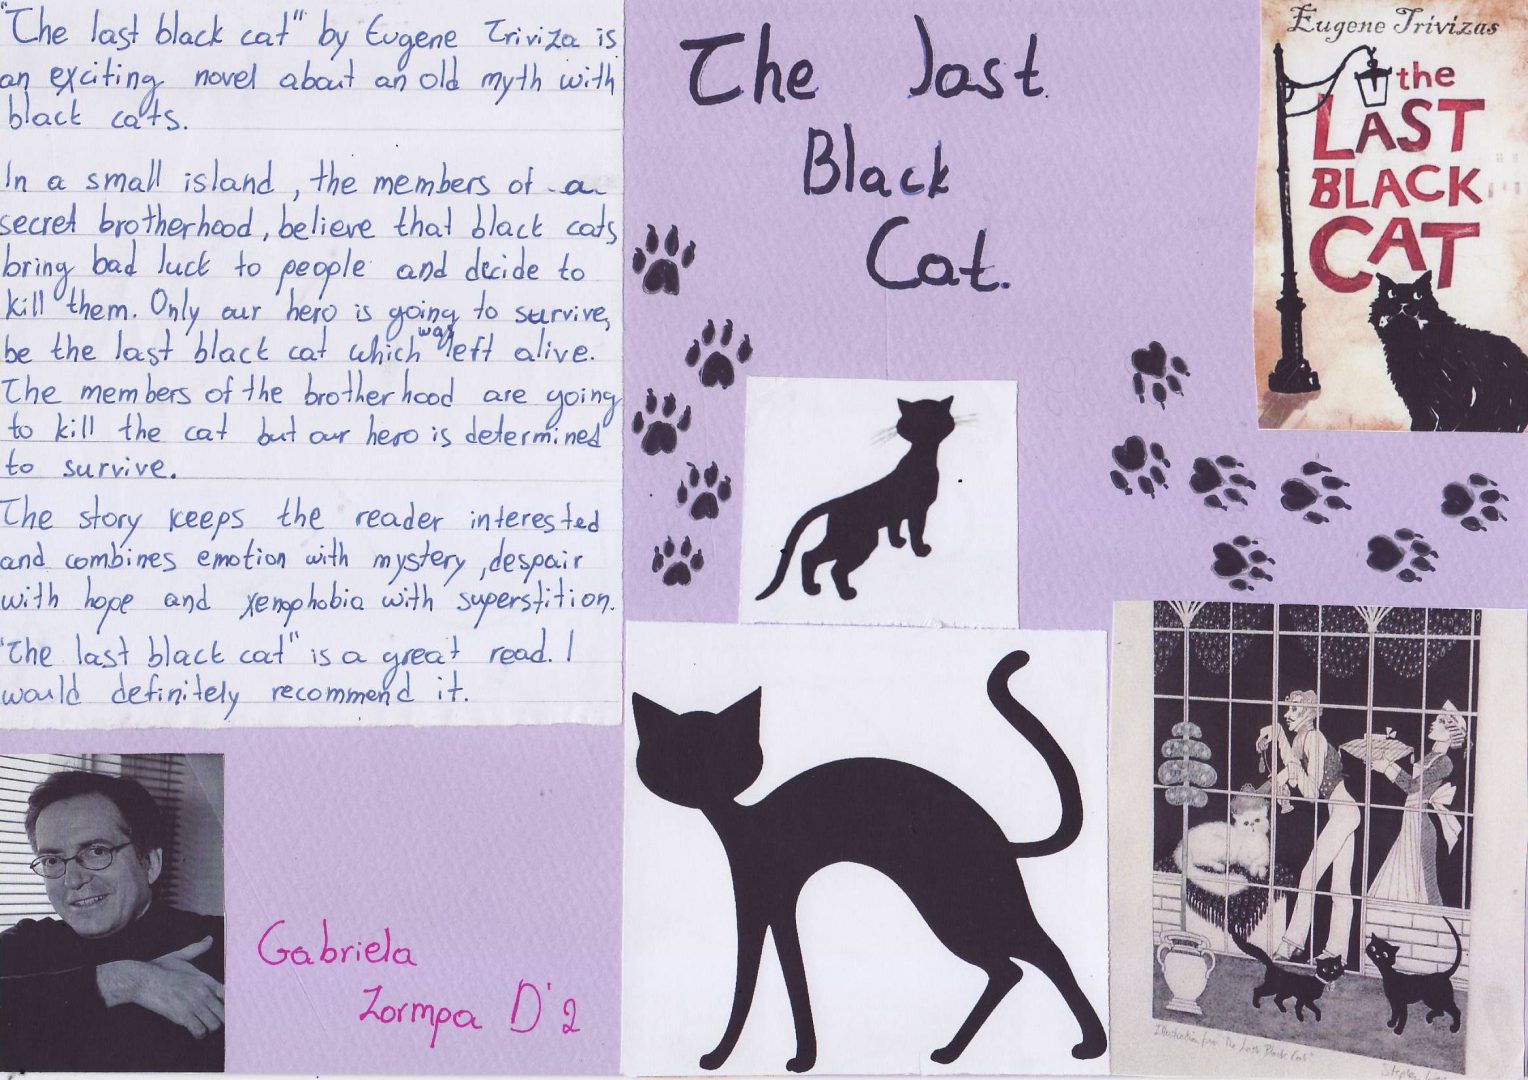 "The last black cat" by Eugene Triviza is
an exciting novel about an old myth with
black cats.
In a small island, the members of a
secret brotherhood, believe that black cats
bring bad luck to people and decide to
kill them. Only our hero is going to survive,
be the last black cat which was left alive.
The members of the brotherhood are going
to kill the cat but our hero is determined
to survive.
The story keeps the reader interested
and combines emotion with mystery, despair
with hope and xenophobia with superstition.
"The last black cat" is a great read. I
would definitely recommend it.
Gabriela
Zormpa D'2
The last
Black
Cat.
Eugene Trivizas
the
LAST
BLACK
CAT
Illustration from "The Last Black Cat"
Stephen